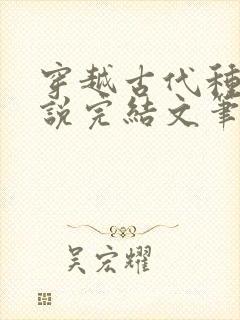 穿越古代種
說完結文筆
吴宏耀